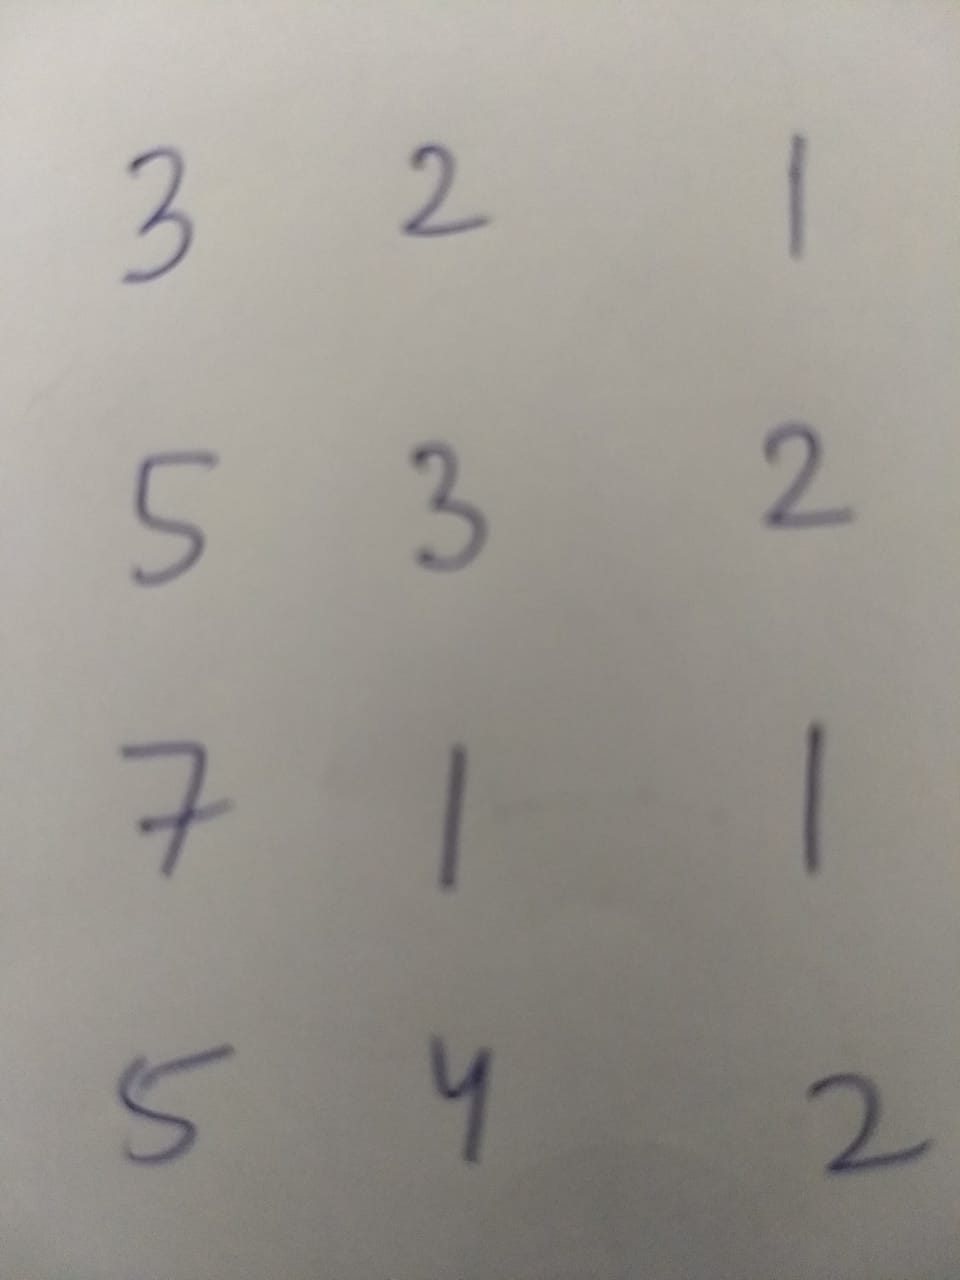 3 2 1
5 3 2
7 1 1
5 4 2